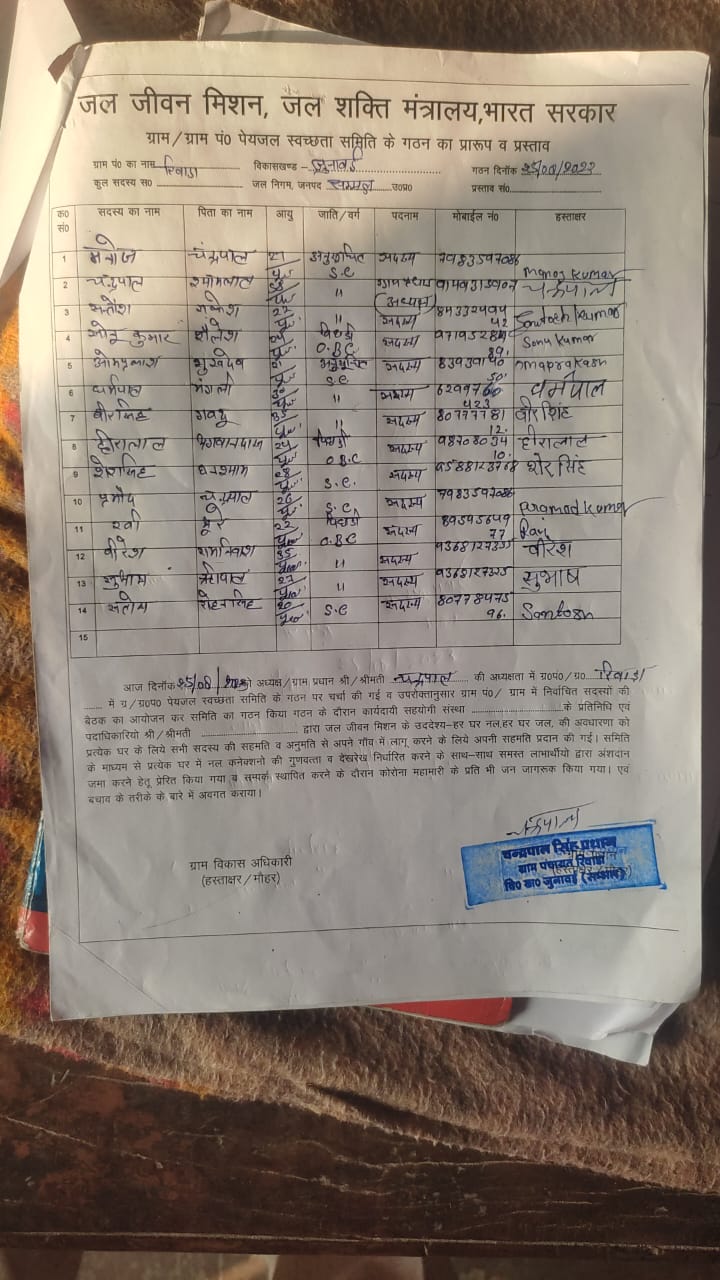 जल जीवन मिशन, जल शक्ति मंत्रालय,भारत सरकार
ग्राम/ग्राम पं0 पेयजल स्वच्छता समिति के गठन का प्रारूप व प्रस्ताव
ग्राम पं0 का नाम रिवाडा विकासखण्ड – जुनावई गठन दिनाँक
कुल सदस्य स0 जल निगम, जनपद सम्भल उ0प्र0 प्रस्ताव सं0
क0 सं0 सदस्य का नाम पिता का नाम आयु जाति/वर्ग पदनाम मोबाईल नं0 हस्ताक्षर
1 मनोज चंद्रपाल 21 अनुसूचित S.C सदस्य 7983597086 Manoj Kumar
2 चन्द्रपाल श्यामलाल " ग्राम प्रधान (अध्यक्ष)
3 संतोश गणेश 27 " सदस्य Santosh Kumar
4 सोनू कुमार शैलेश पिछडी O.B.C सदस्य Sonu Kumar
5 ओमप्रकाश सुखदेव अनुसूचित S.C सदस्य omaprakash
6 धर्मपाल मंगली " सदस्य धर्मपाल
7 वीरसिंह " सदस्य 8077778112 वीर सिंह
8 हीरालाल भगवानदास पिछडी O.B.C सदस्य हीरालाल
9 शेरसिंह घनश्याम 28 S.C. सदस्य शेर सिंह
10 प्रमोद चन्द्रपाल 26 S.C सदस्य 7983597086 Pramod Kumar
11 रवी भूरे 22 पिछडी O.B.C सदस्य 8959564977 Ravi
12 वीरेश रामनिवास 35 " सदस्य 9368127335 वीरेश
13 शुभाष 27 " सदस्य सुभाष
14 संतोष रोहनसिंह 20 S.C सदस्य 8077847596 Santosh
15
आज दिनाँक 25/08/ को अध्यक्ष/ग्राम प्रधान श्री/श्रीमती चन्द्रपाल की अध्यक्षता में ग्र0पं0/ग्रा0 रिवाडा
में ग्र/ग्र0प0 पेयजल स्वच्छता समिति के गठन पर चर्चा की गई व उपरोक्तानुसार ग्राम पं0/ ग्राम में निर्वाचित सदस्यों की
बैठक का आयोजन कर समिति का गठन किया गठन के दौरान कार्यदायी सहयोगी संस्था के प्रतिनिधि एवं
पदाधिकारियो श्री/श्रीमती द्वारा जल जीवन मिशन के उददेश्य–हर घर नल,हर घर जल, की अवधारणा को
प्रत्येक घर के लिये सभी सदस्य की सहमति व अनुमति से अपने गाँव में लागू करने के लिये अपनी सहमति प्रदान की गई। समिति
के माध्यम से प्रत्येक घर में नल कनेक्शनो की गुणवत्ता व देखरेख निर्धारित करने के साथ–साथ समस्त लाभार्थीयो द्वारा अंशदान
जमा करने हेतू प्रेरित किया गया व सम्पर्क स्थापित करने के दौरान कोरोना महामारी के प्रति भी जन जागरूक किया गया। एवं
बचाव के तरीके के बारे में अवगत कराया।
ग्राम विकास अधिकारी
(हस्ताक्षर/मौहर)
चन्द्रपाल सिंह प्रधान
ग्राम पंचायत रिवाड़ा
वि0 ख0 जुनावई (सम्भल)